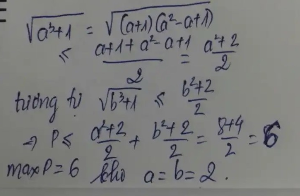 √(a³+1) = √((a+1)(a²-a+1))
≤ (a+1+a²-a+1)/2 = (a²+2)/2
tương tự √(b³+1) ≤ (b²+2)/2
⇒ P ≤ (a²+2)/2 + (b²+2)/2 = (8+4)/2 = 6
max P = 6 khi a = b = 2.